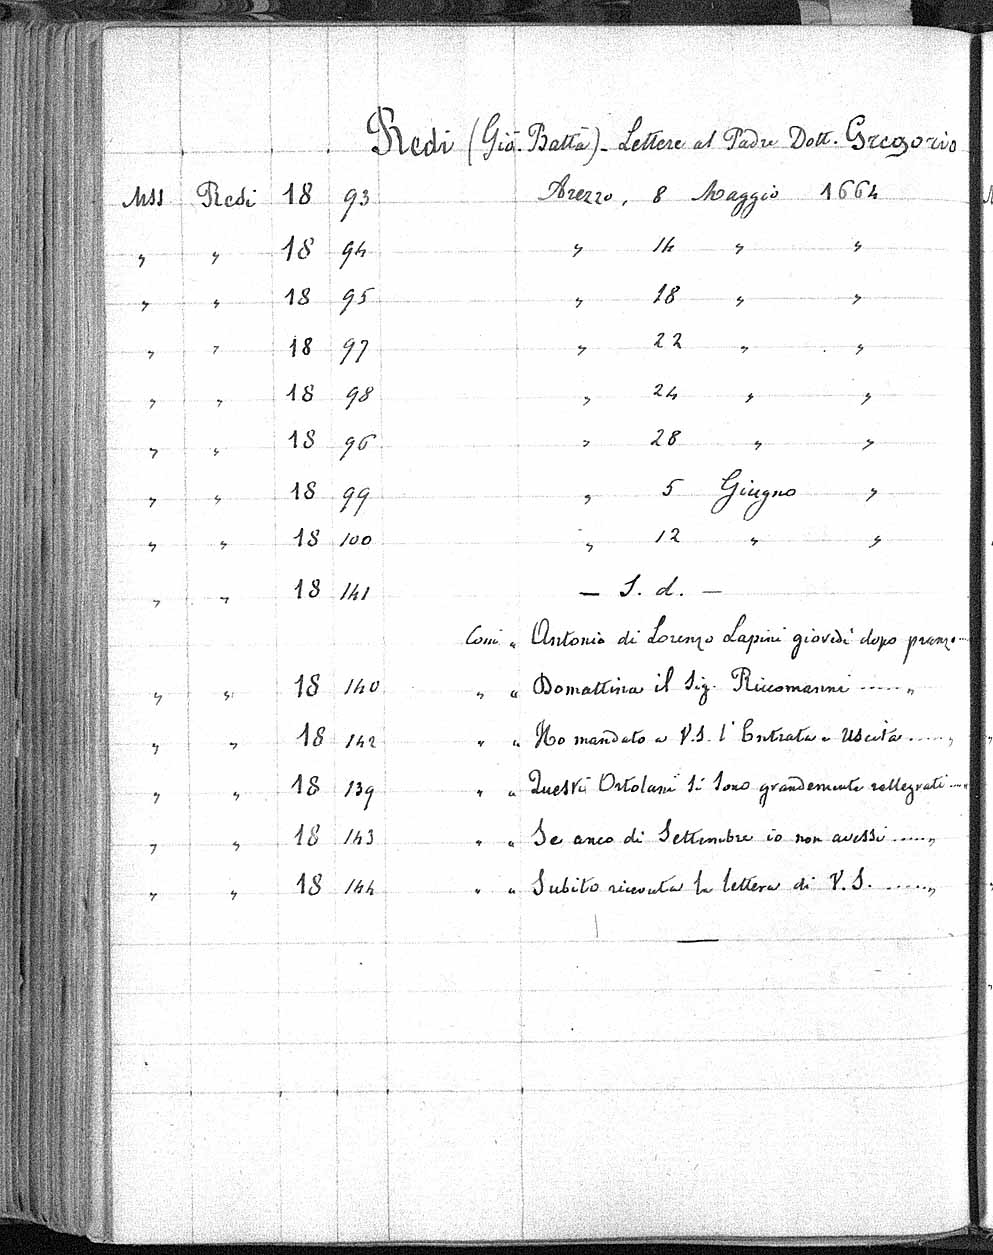 Redi (Gio. Batta) - Lettere al Padre Dott. Gregorio
MSS Redi 18 93 Arezzo, 8 Maggio 1664
" " 18 94 " 14 " "
" " 18 95 " 18 " "
" " 18 97 " 22 " "
" " 18 98 " 24 " "
" " 18 96 " 28 " "
" " 18 99 " 5 Giugno "
" " 18 100 " 12 " "
" " 18 141 — S. d. —
Com. " Antonio di Lorenzo Lapini giovedì dopo pranzo...
" " 18 140 " " Domattina il Sig. Riccomanni ...... "
" " 18 142 " " Ho mandato a V.S. l'Entrata e Uscita ...... "
" " 18 139 " " Questi Ortolani si sono grandemente rallegrati .... "
" " 18 143 " " Se anco di Settembre io non avessi ...... "
" " 18 144 " " Subito ricevuta la lettera di V.S. ...... "